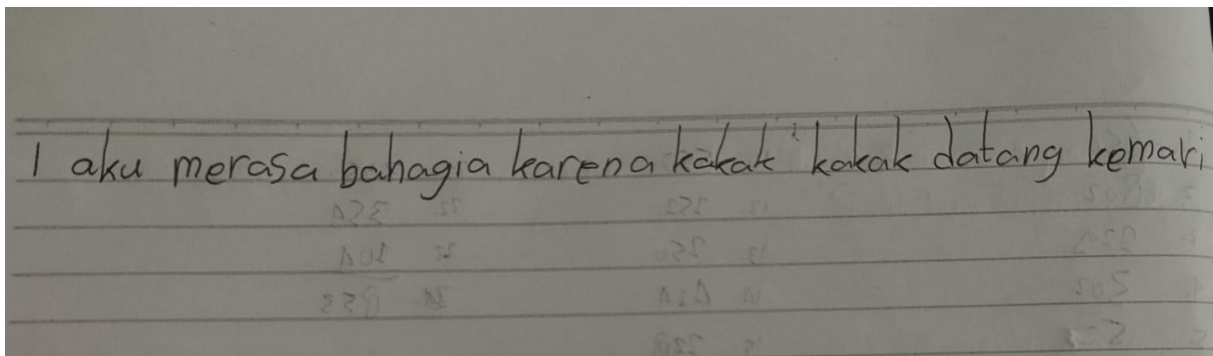 1 aku merasa bahagia karena kakak kakak datang kemari